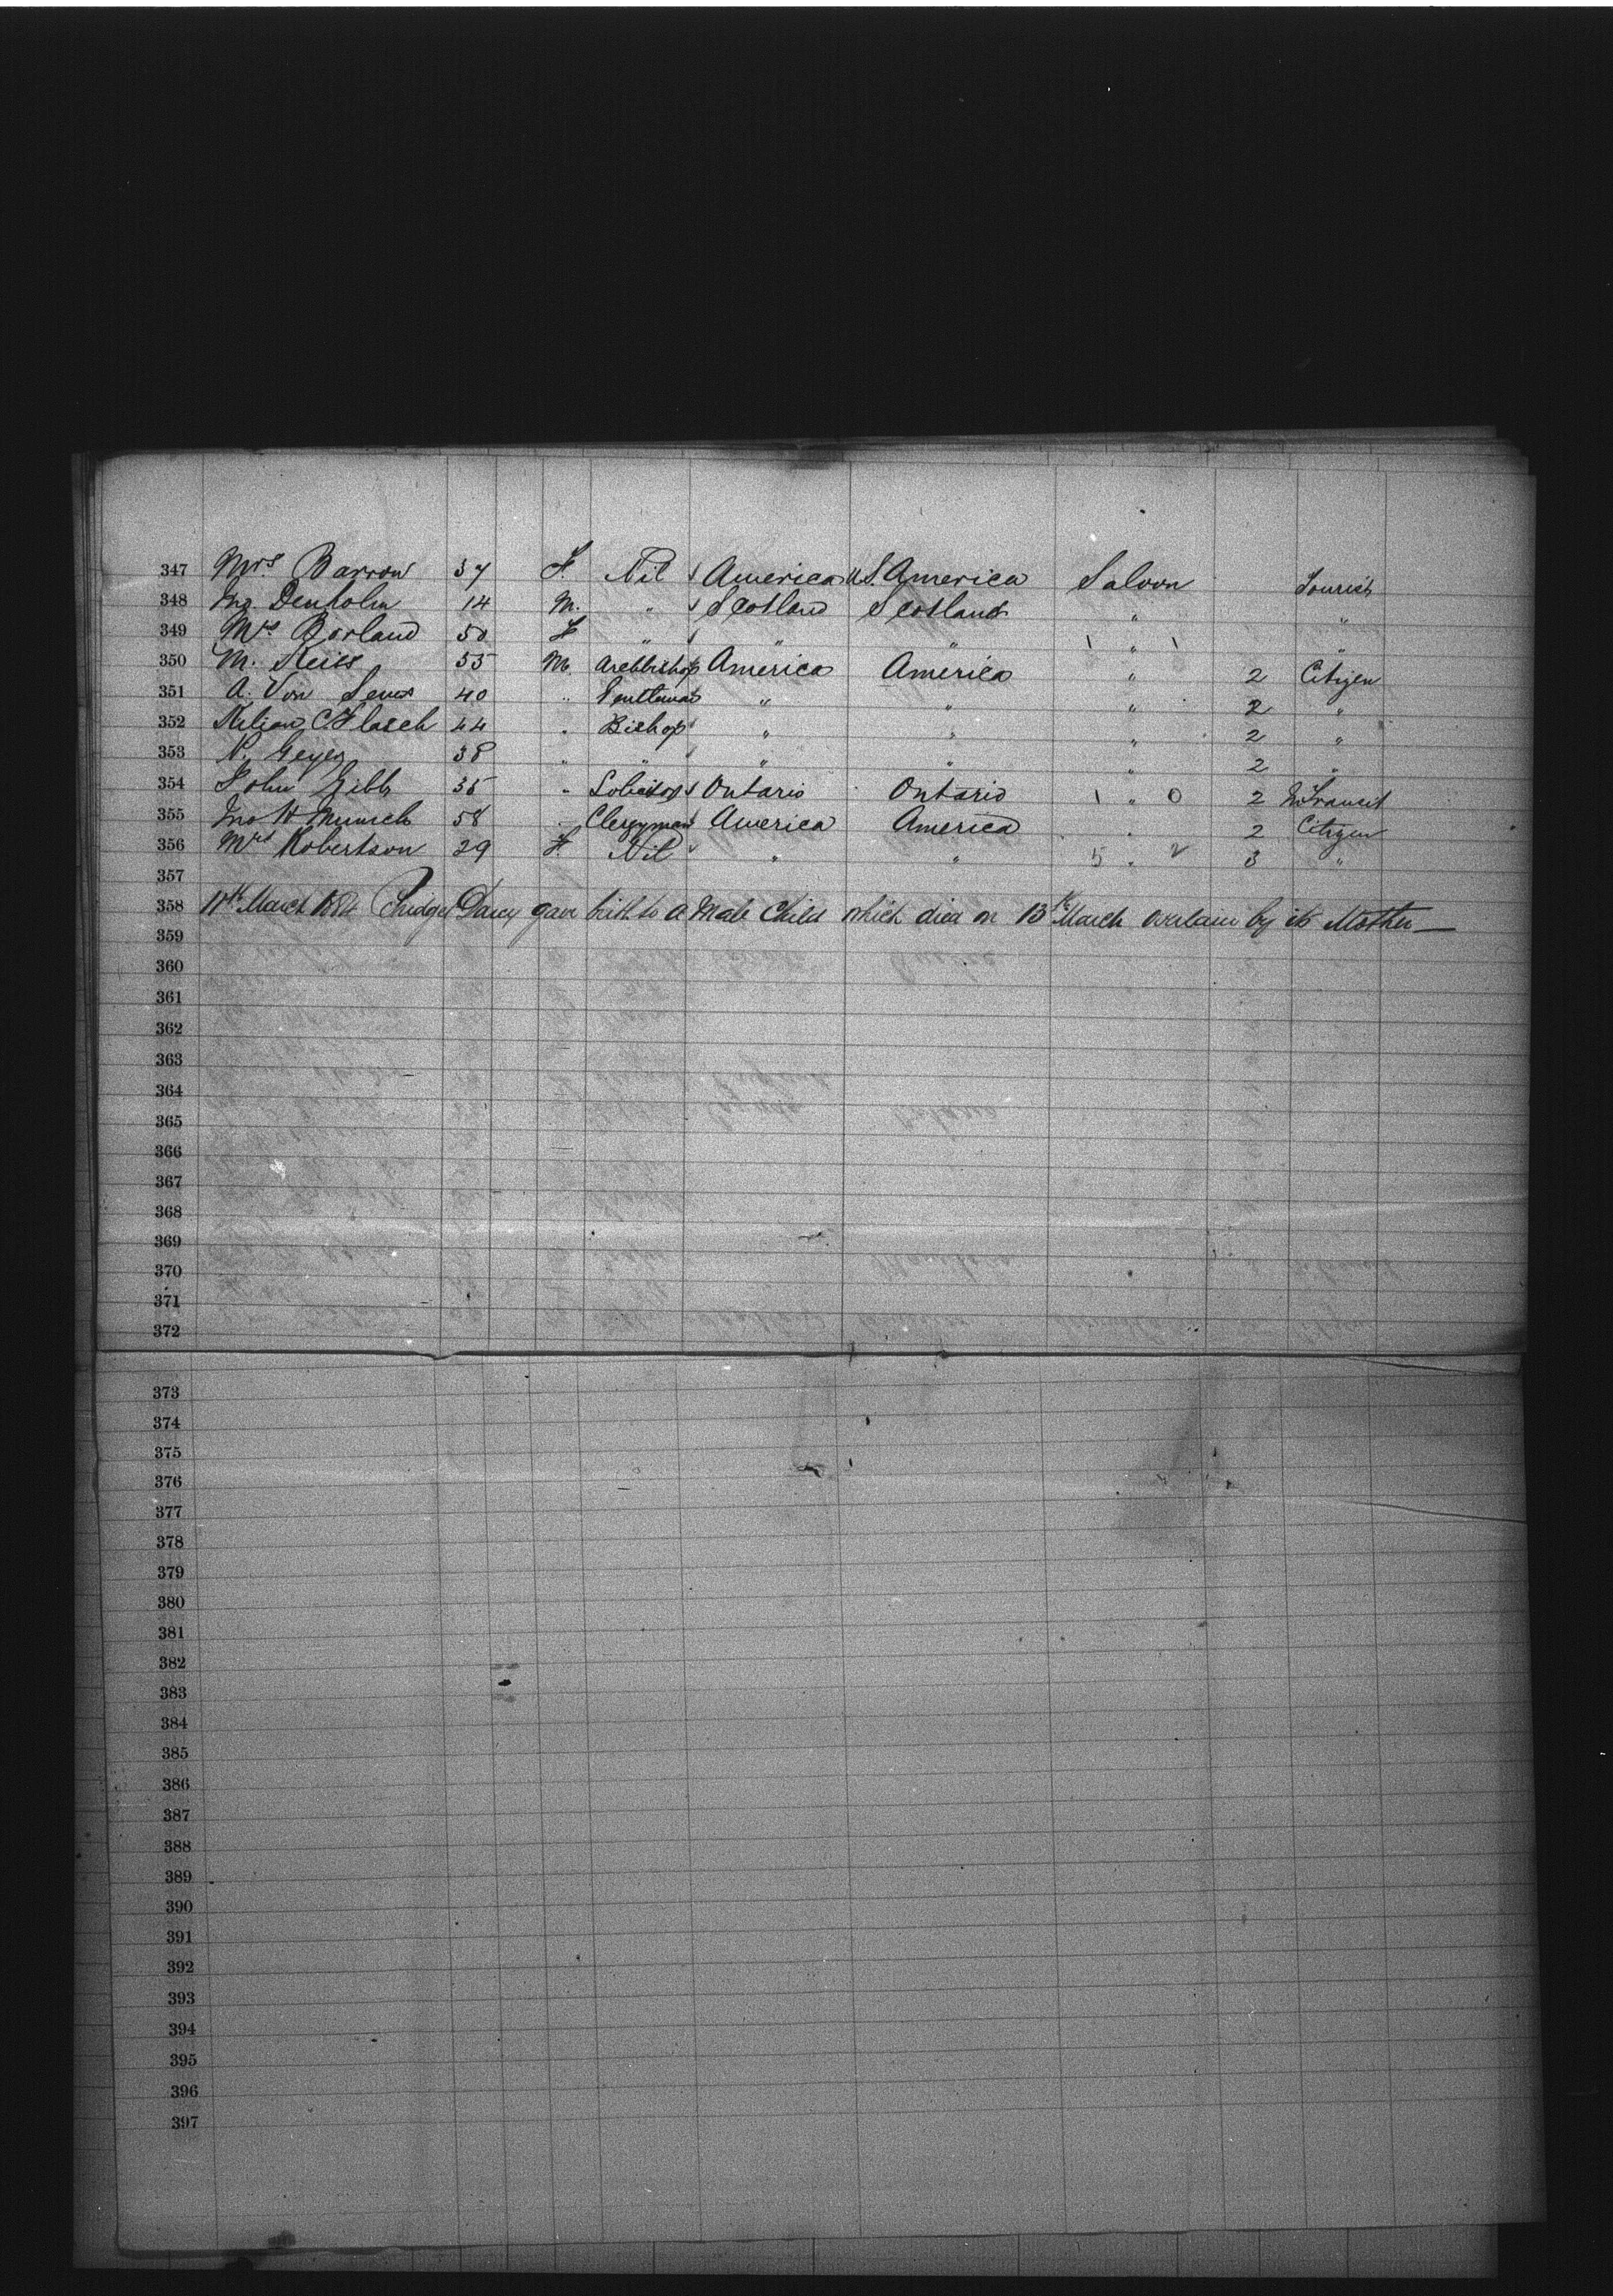 347 Mrs. Barrow 37 F. Nil America U.S. America Saloon Tourist
348 Jno. Denholm 14 M. " Scotland Scotland " "
349 Mrs Borland 50 F " " " 1 " 1 "
350 M. Heiss 55 M. Archbishop America America " 2 Citizen
351 A. Von 40 " " " " 2 "
352 Kilian C. Flasch 44 " Bishop " " " 2 "
353 N. Geyer 38 " " " " " 2 "
354 John Gibb 35 " Solicitor Ontario Ontario 1 " 0 2 In Transit
355 Jno H Munich 58 " Clergyman America America " 2 Citizen
356 Mrs Robertson 29 F. Nil " " 5 " 2 3 "
357
358 11th March 1884 Bridget Darcy gave birth to a Male Child which died on 13th March overlain by its Mother —
359
360
361
362
363
364
365
366
367
368
369
370
371
372
373
374
375
376
377
378
379
380
381
382
383
384
385
386
387
388
389
390
391
392
393
394
395
396
397